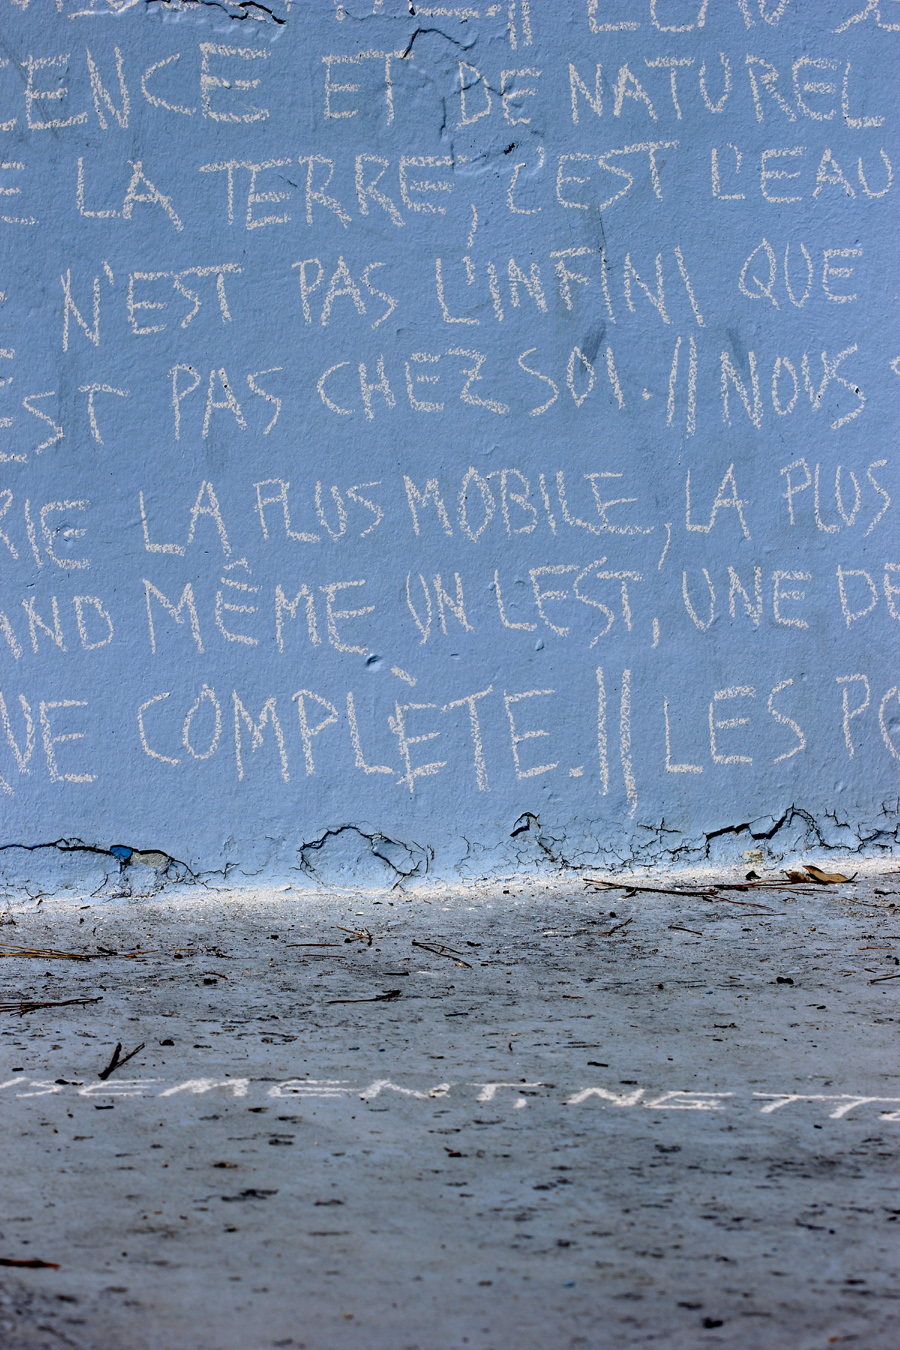 ENCE ET DE NATUREL
E LA TERRE, C'EST L'EAU
N'EST PAS L'INFINI QUE
EST PAS CHEZ SOI. // NOUS
RIE LA PLUS MOBILE, LA PLUS
AND MÊME UN L'EST, UNE DE
NE COMPLÈTE. // LES PO
EMENT, NETT